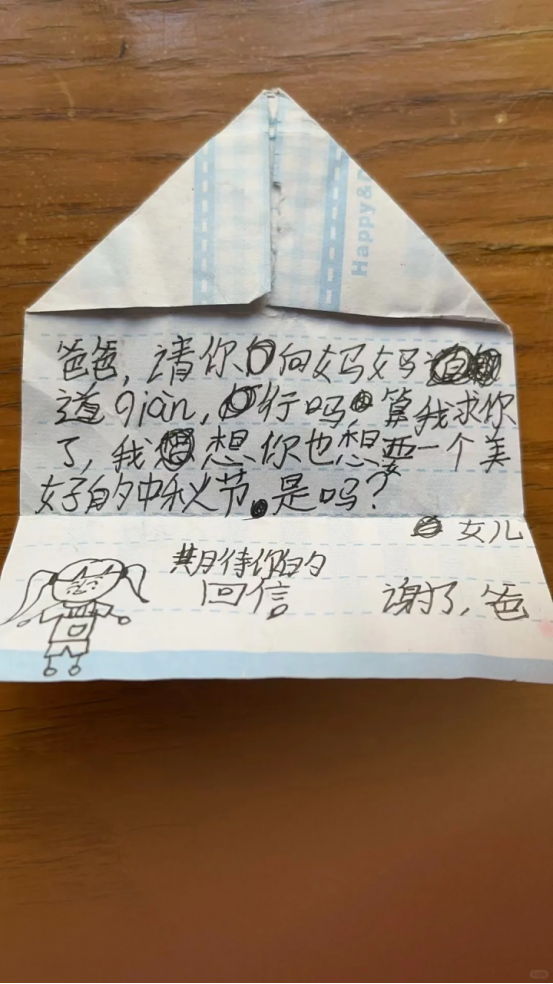 Happy&
爸爸，请你向妈妈
道qiàn，行吗，算我求你
了，我想你也想要一个美
好的中秋节。是吗？
女儿
期待你的
回信
谢了，爸